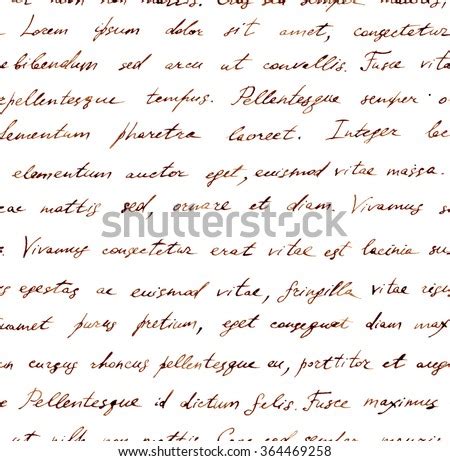 non mattis. Cras sed semper mauris,
Lorem ipsum dolor sit amet, consectetur
bibendum sed arcu ut convallis. Fusce vita
pellentesque tempus. Pellentesque semper o
lementum pharetra laoreet. Integer lac
elementum auctor eget, euismod vitae massa.
ac mattis sed, ornare et diam. Vivamus
s. Vivamus consectetur erat vitae est lacinia sus
s egestas ac euismod vitae, fringilla vitae risus
amet purus pretium, eget consequat diam max
m cursus rhoncus pellentesque eu, porttitor et augu
e Pellentesque id dictum felis. Fusce maximus
ut nibh non mattis. Cras sed semper mauris
shutterstock
shutterstock.com · 364469258